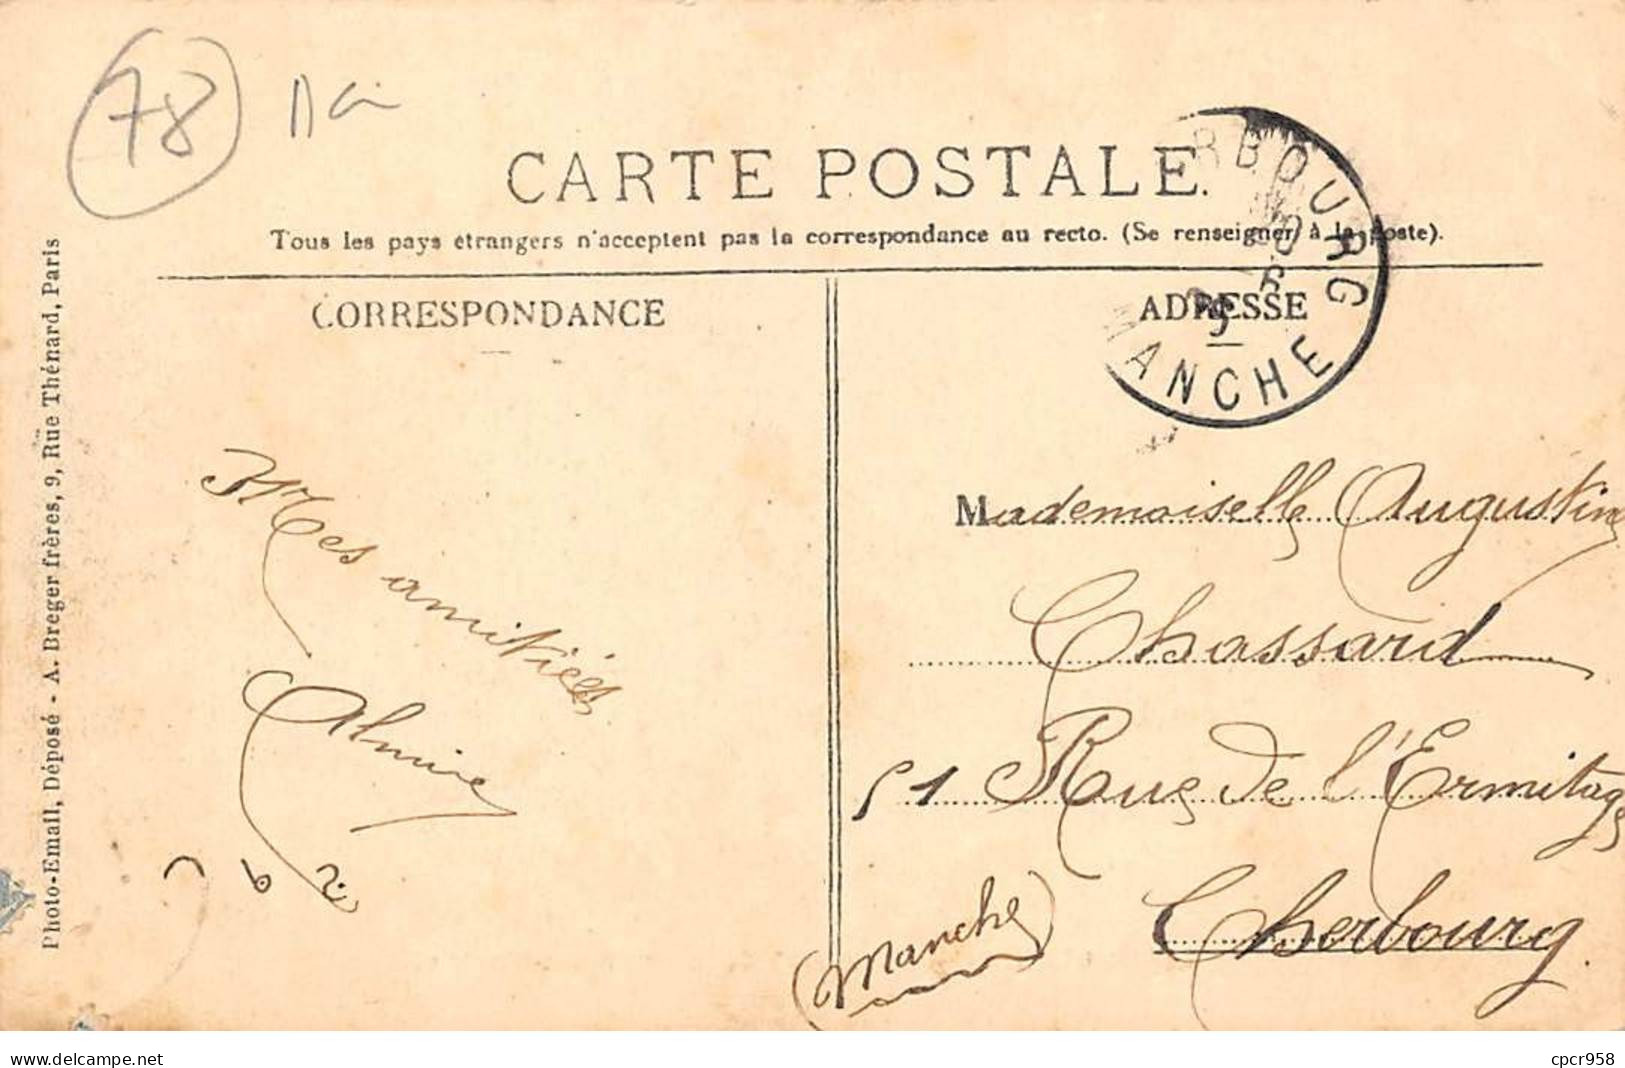 78
CARTE POSTALE.
Tous les pays étrangers n'acceptent pas la correspondance au recto. (Se renseigner à la poste).
CORRESPONDANCE
ADRESSE
RBOURG
MANCHE
Photo-Email, Déposé - A. Breger frères, 9, Rue Thénard, Paris
Mes amitiés
Almire
Mademoiselle Augustine
Chassard
51 Rue de l'Ermitage
Cherbourg.
(Manche)
delcampe.net
cpcr958